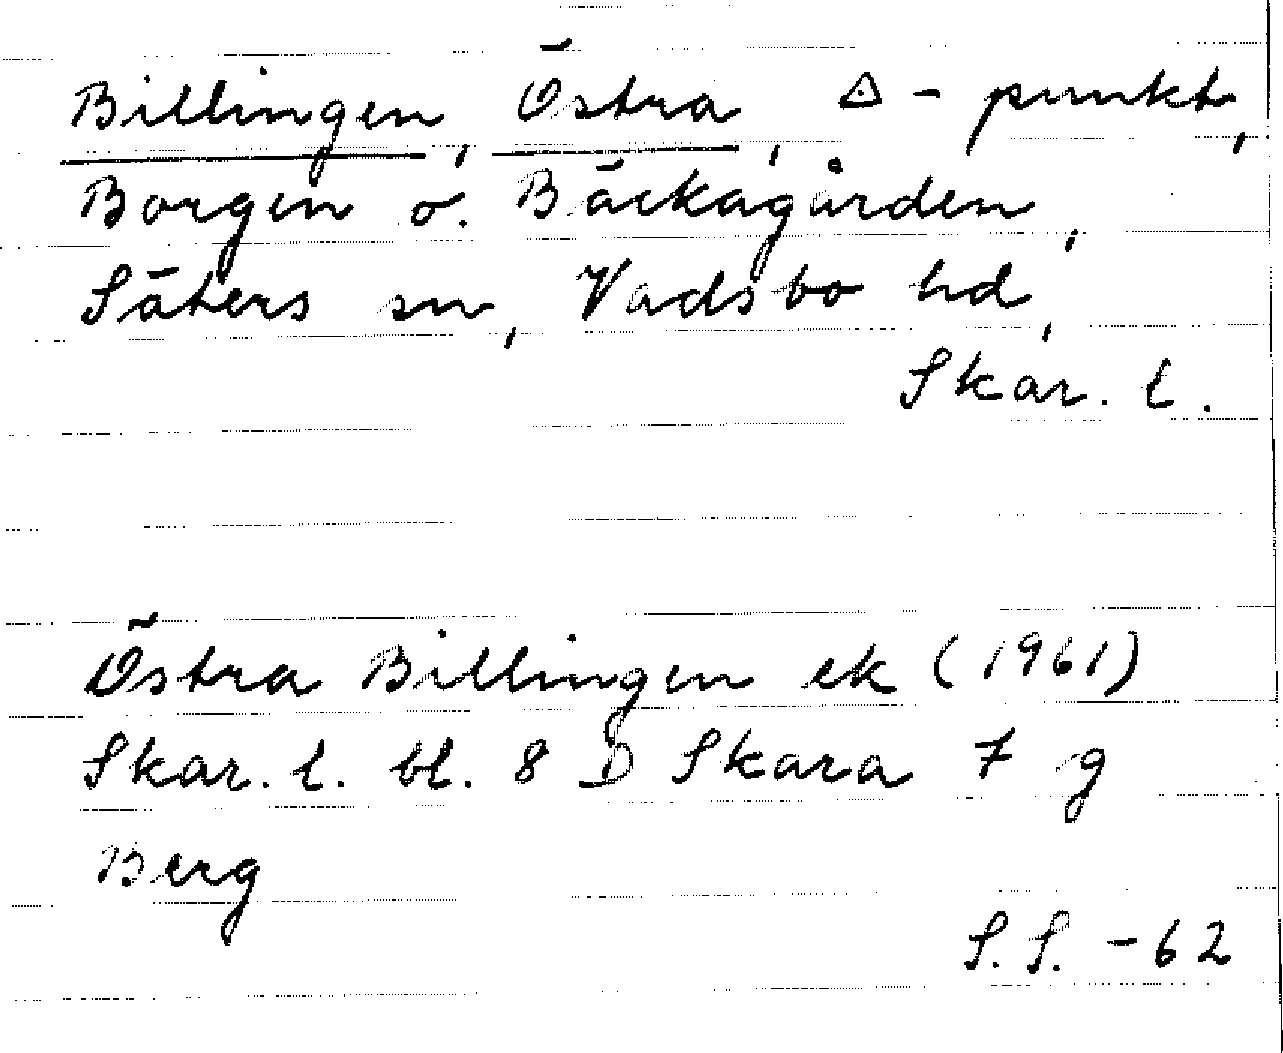 Billingen, Östra, △ - punkt,
Borgen o. Bäckagården,
Säters sn, Vadsbo hd,
Skar. l.
Östra Billingen ek (1961)
Skar. l. bl. 8 D Skara 7 g
Berg
S.S. -62